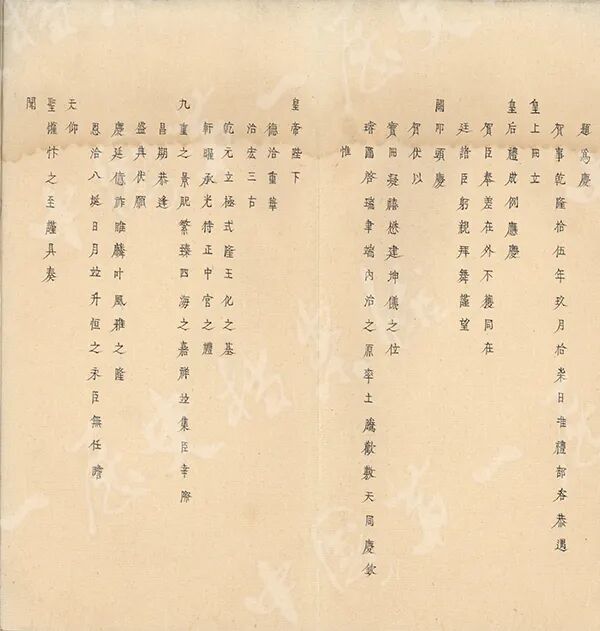 題為慶
賀事乾隆拾伍年玖月拾柒日准禮部咨恭遇
皇上冊立
皇后禮成例應慶
賀臣奉差在外不獲同在
廷諸臣躬親拜舞謹望
闕叩頭慶
賀伏以
寶冊凝禧懋建坤儀之位
璿圖啓瑞聿端內治之原率土臚歡敷天同慶欽
惟
皇帝陛下
德洽重華
治宏三古
乾元立極式隆王化之基
軒曜承光特正中宮之體
九重之景貺繁臻四海之嘉祥竝集臣幸際
昌期恭逢
盛典伏願
慶延億祚睢麟叶風雅之隆
恩洽八埏日月竝升恒之永臣無任瞻
天仰
聖懽忭之至謹具奏
聞